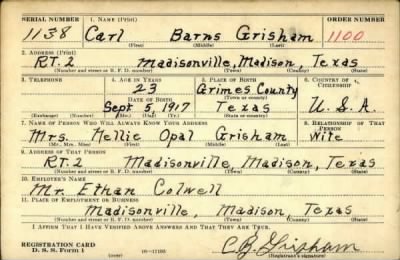 SERIAL NUMBER 1. NAME (Print) ORDER NUMBER
1138 Carl Barns Grisham 1100
(First) (Middle) (Last)
2. ADDRESS (Print)
RT. 2 Madisonville, Madison, Texas
(Number and street or R. F. D. number) (Town) (County) (State)
3. TELEPHONE 4. AGE IN YEARS 5. PLACE OF BIRTH 6. COUNTRY OF CITIZENSHIP
23 Grimes County
DATE OF BIRTH (Town or county)
Sept 5, 1917 Texas U. S. A.
(Exchange) (Number) (Mo.) (Day) (Yr.) (State or country)
7. NAME OF PERSON WHO WILL ALWAYS KNOW YOUR ADDRESS 8. RELATIONSHIP OF THAT PERSON
Mrs. Nellie Opal Grisham Wife
(Mr., Mrs., Miss) (First) (Middle) (Last)
9. ADDRESS OF THAT PERSON
RT. 2 Madisonville, Madison, Texas
(Number and street or R. F. D. number) (Town) (County) (State)
10. EMPLOYER'S NAME
Mr. Ethan Colwell
11. PLACE OF EMPLOYMENT OR BUSINESS
Madisonville, Madison, Texas
(Number and street or R. F. D. number) (Town) (County) (State)
I AFFIRM THAT I HAVE VERIFIED ABOVE ANSWERS AND THAT THEY ARE TRUE.
REGISTRATION CARD
D. S. S. Form 1 C B Grisham
(Registrant's signature)